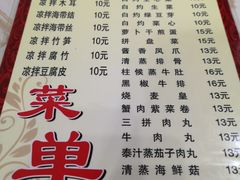 凉拌木耳 10元
凉拌海带结 10元
凉拌海带丝 10元
凉拌竹笋 10元
凉拌腐竹 10元
凉拌豆腐皮 10元
菜单
白灼绿豆芽 10元
白灼菜心 10元
萝卜干煎蛋 15元
拼盘菜 16元
酱香凤爪 13元
清蒸排骨 13元
柱候蒸牛肚 16元
黑椒牛排 16元
烧麦皇 13元
蟹肉紫菜卷 13元
三拼肉丸 13元
牛肉丸 13元
泰汁蒸茄子肉丸 13元
清蒸海鲜菇 13元